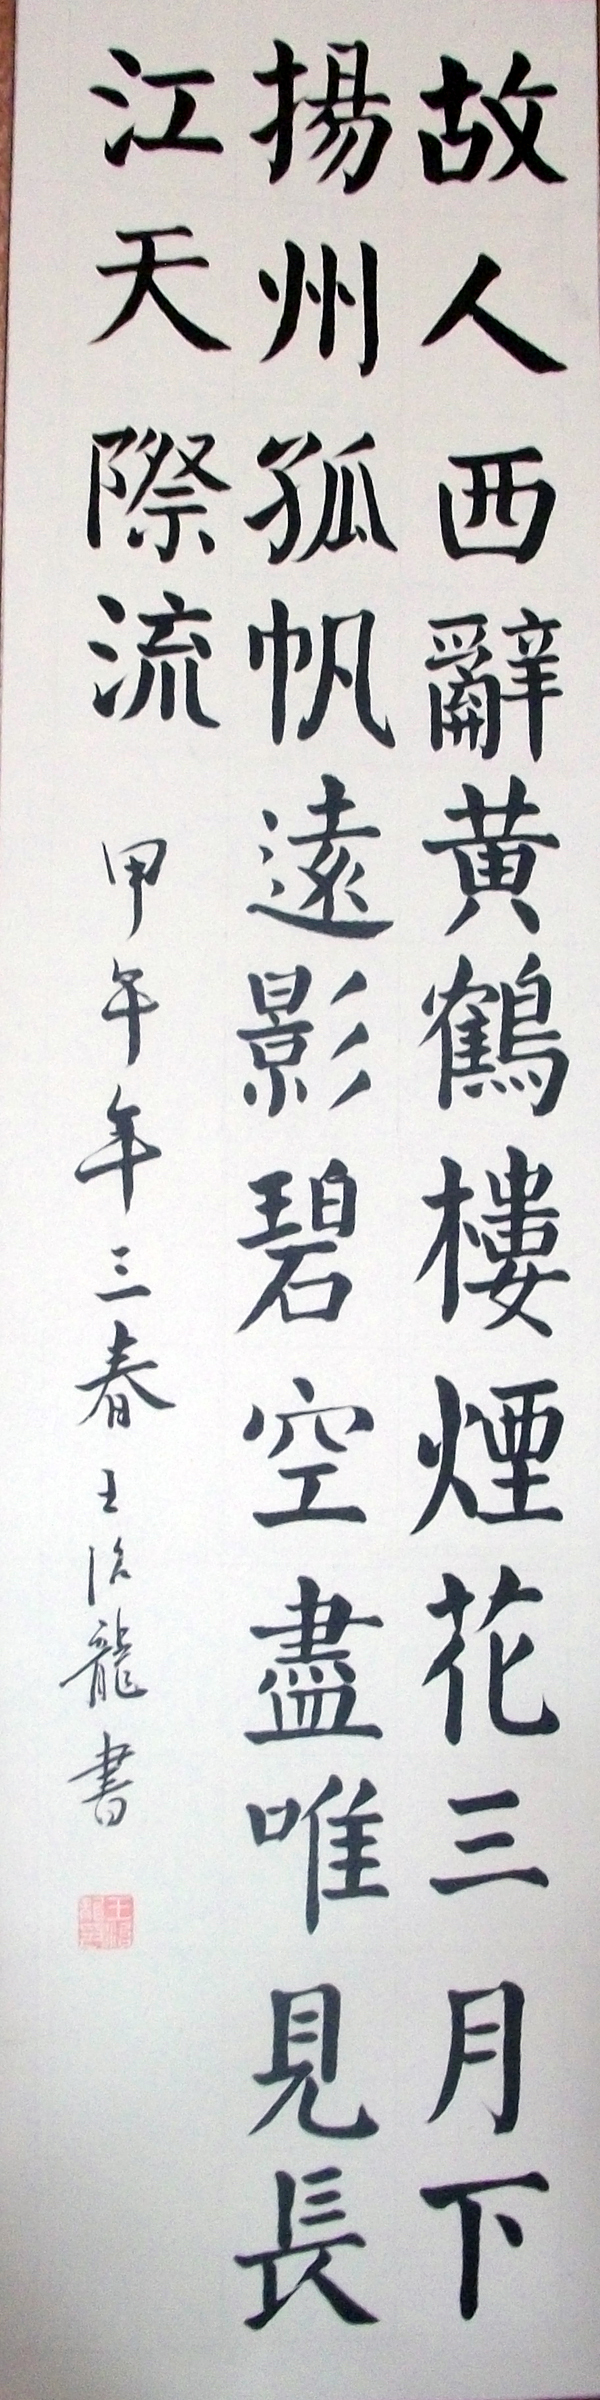 故人西辭黄鶴樓煙花三月下
揚州孤帆遠影碧空盡唯見長
江天際流
甲午年三春王治龍書